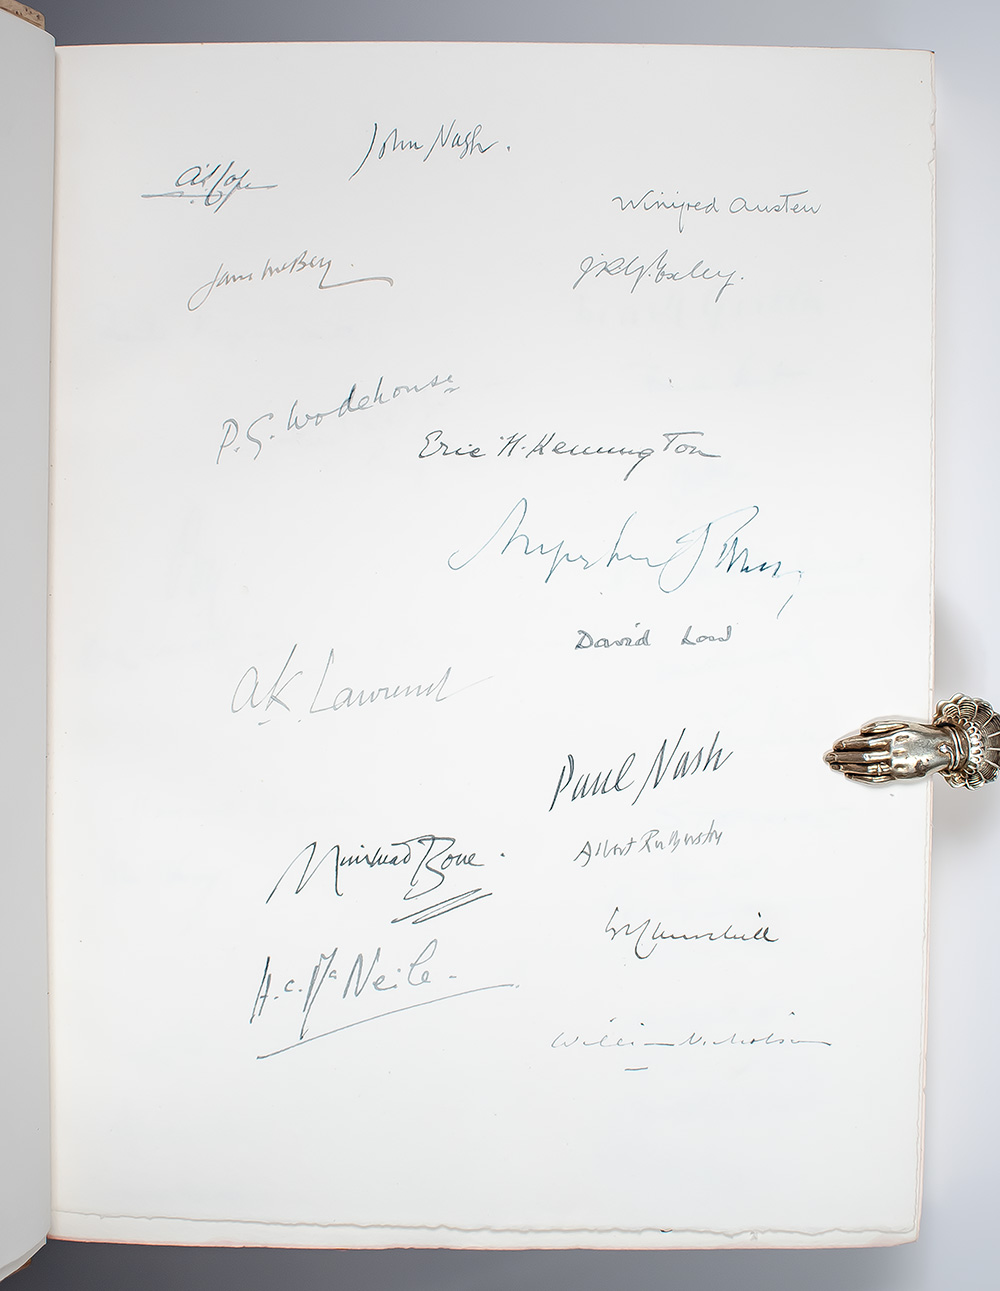 John Nash.
A.S. Cope
Winifred Austen
James McBey.
J.R.G. Exley.
P.G. Wodehouse
Eric H. Kennington
Augustus E John
David Low
A.K. Lawrence
Paul Nash
Albert Rutherston
Muirhead Bone.
W Churchill
H.C. McNeile
William Nicholson